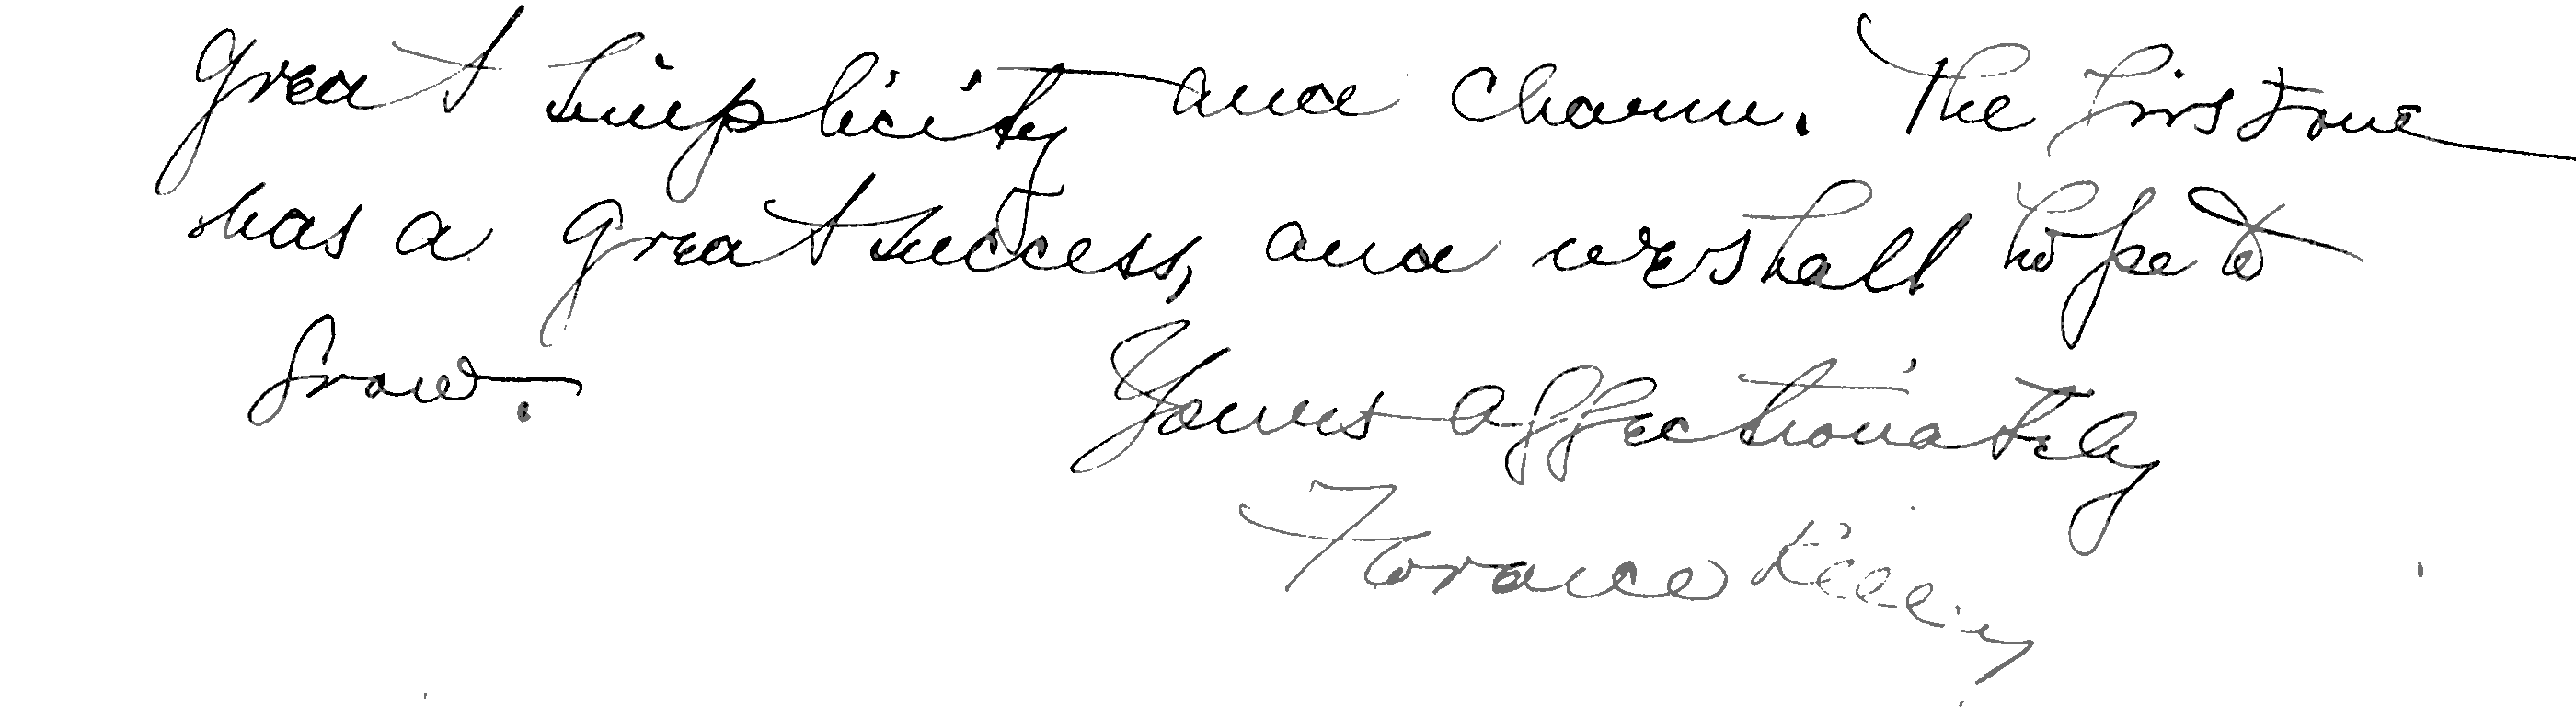 great simplicity and charm. The first one
was a great success, and we shall hope to
grow.
Yours affectionately
Florence Kelley